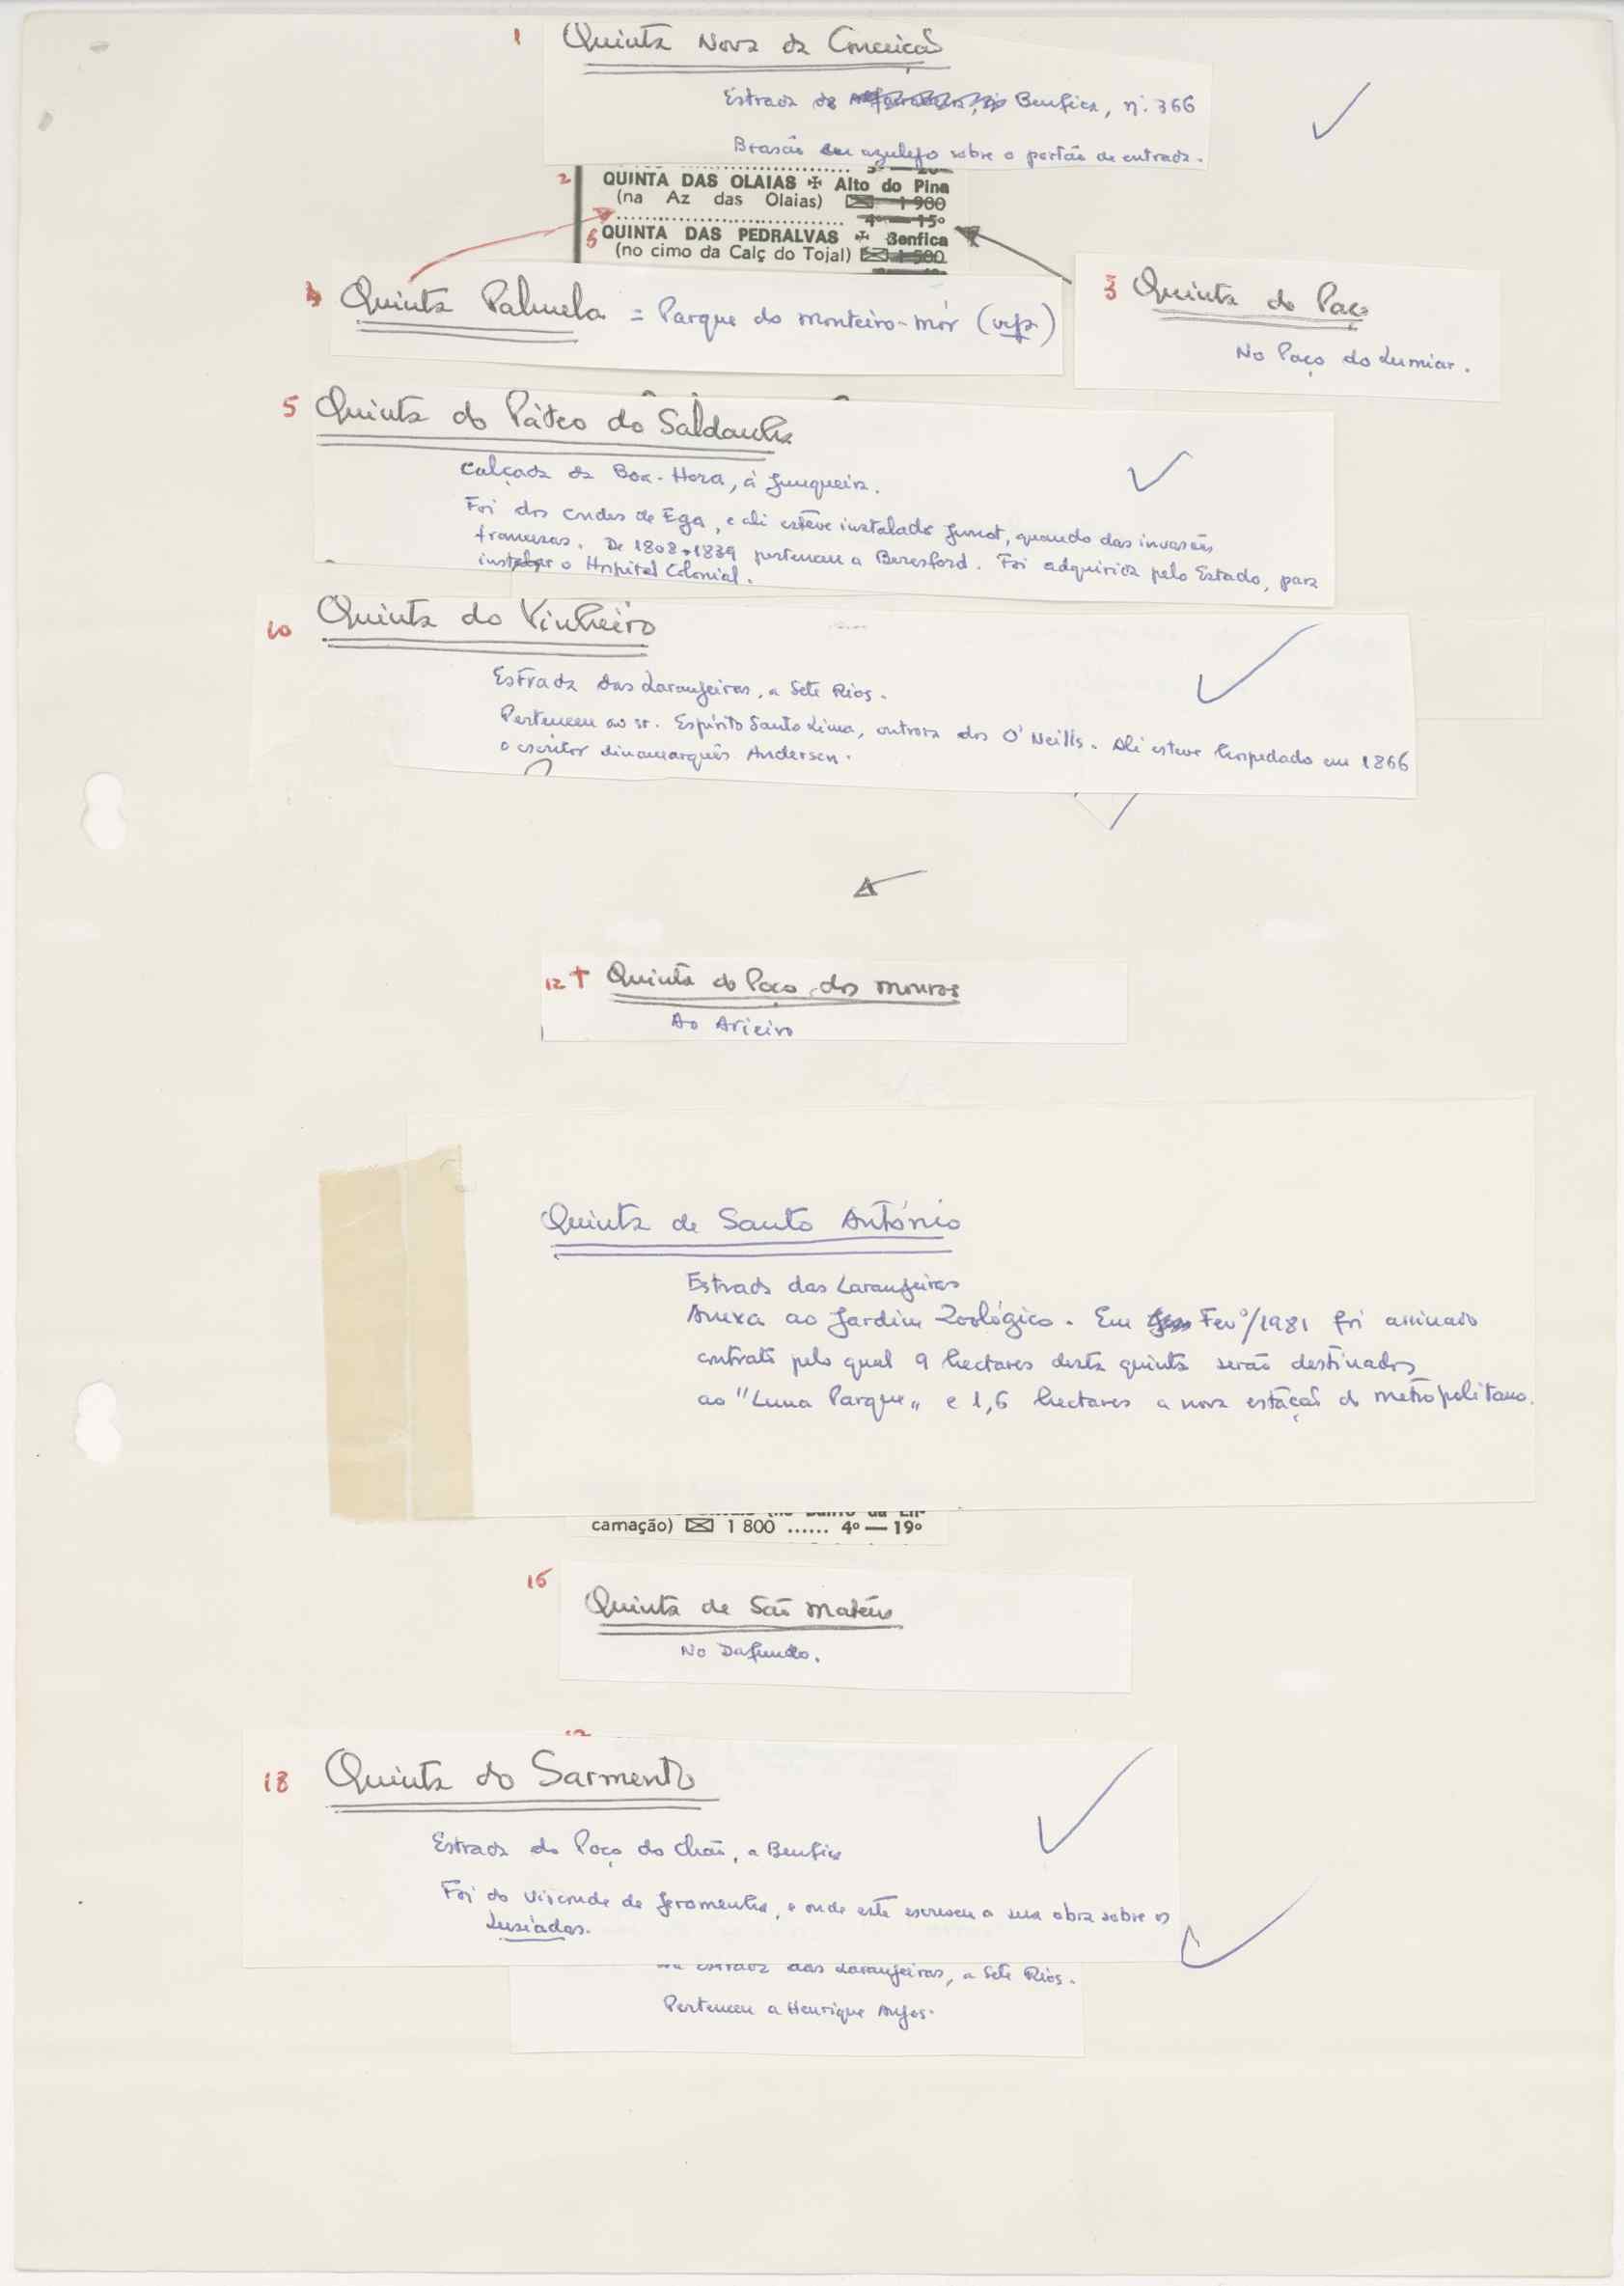 1 Quinta Nova da Conceição
Estrada de Benfica, nº. 366
Brasão em azulejo sobre o portão de entrada.
2 QUINTA DAS OLAIAS ✠ Alto do Pina
(na Az das Olaias) 1 900
4º — 15º
6 QUINTA DAS PEDRALVAS ✠ Benfica
(no cimo da Calç do Tojal) 1 500
4 Quinta Palmela = Parque do Monteiro-Mór (veja)
3 Quinta do Paço
No Paço do Lumiar.
5 Quinta do Páteo do Saldanha
Calçada da Boa-Hora, à Junqueira.
Foi dos condes de Ega, e ali estêve instalado Junot, quando das invasões
francesas. De 1808 a 1839 pertenceu a Beresford. Foi adquirida pelo Estado, para
instalar o Hospital Colonial.
10 Quinta do Pinheiro
Estrada das Laranjeiras, a Sete Rios.
Pertenceu ao sr. Espírito Santo Lima, outrora dos O'Neills. Ali esteve hospedado em 1866
o escritor dinamarquês Andersen.
12 Quinta do Poço dos Mouros
Ao Arieiro
Quinta de Santo António
Estrada das Laranjeiras
Anexa ao Jardim Zoológico. Em Fevº/1981 foi assinado
contrato pelo qual 9 hectares desta quinta serão destinados
ao "Luna Parque" e 1,6 hectares a nova estação do metropolitano.
carnação) 1 800 ...... 4º — 19º
16
Quinta de São Mateus
No Dafundo.
18 Quinta do Sarmento
Estrada do Poço do Chão, a Benfica
Foi do Visconde de Jeromenha, e onde este escreveu a sua obra sobre os
Lusíadas.
estrada das Laranjeiras, a Sete Rios.
Pertenceu a Henrique Anjos.